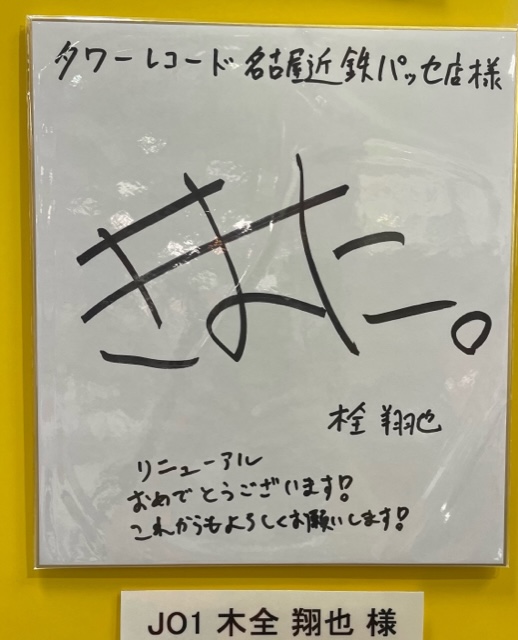 タワーレコード名古屋近鉄パッセ店様
きまた。
木全 翔也
リニューアル
おめでとうございます!
これからもよろしくお願いします!
JO1 木全 翔也 様